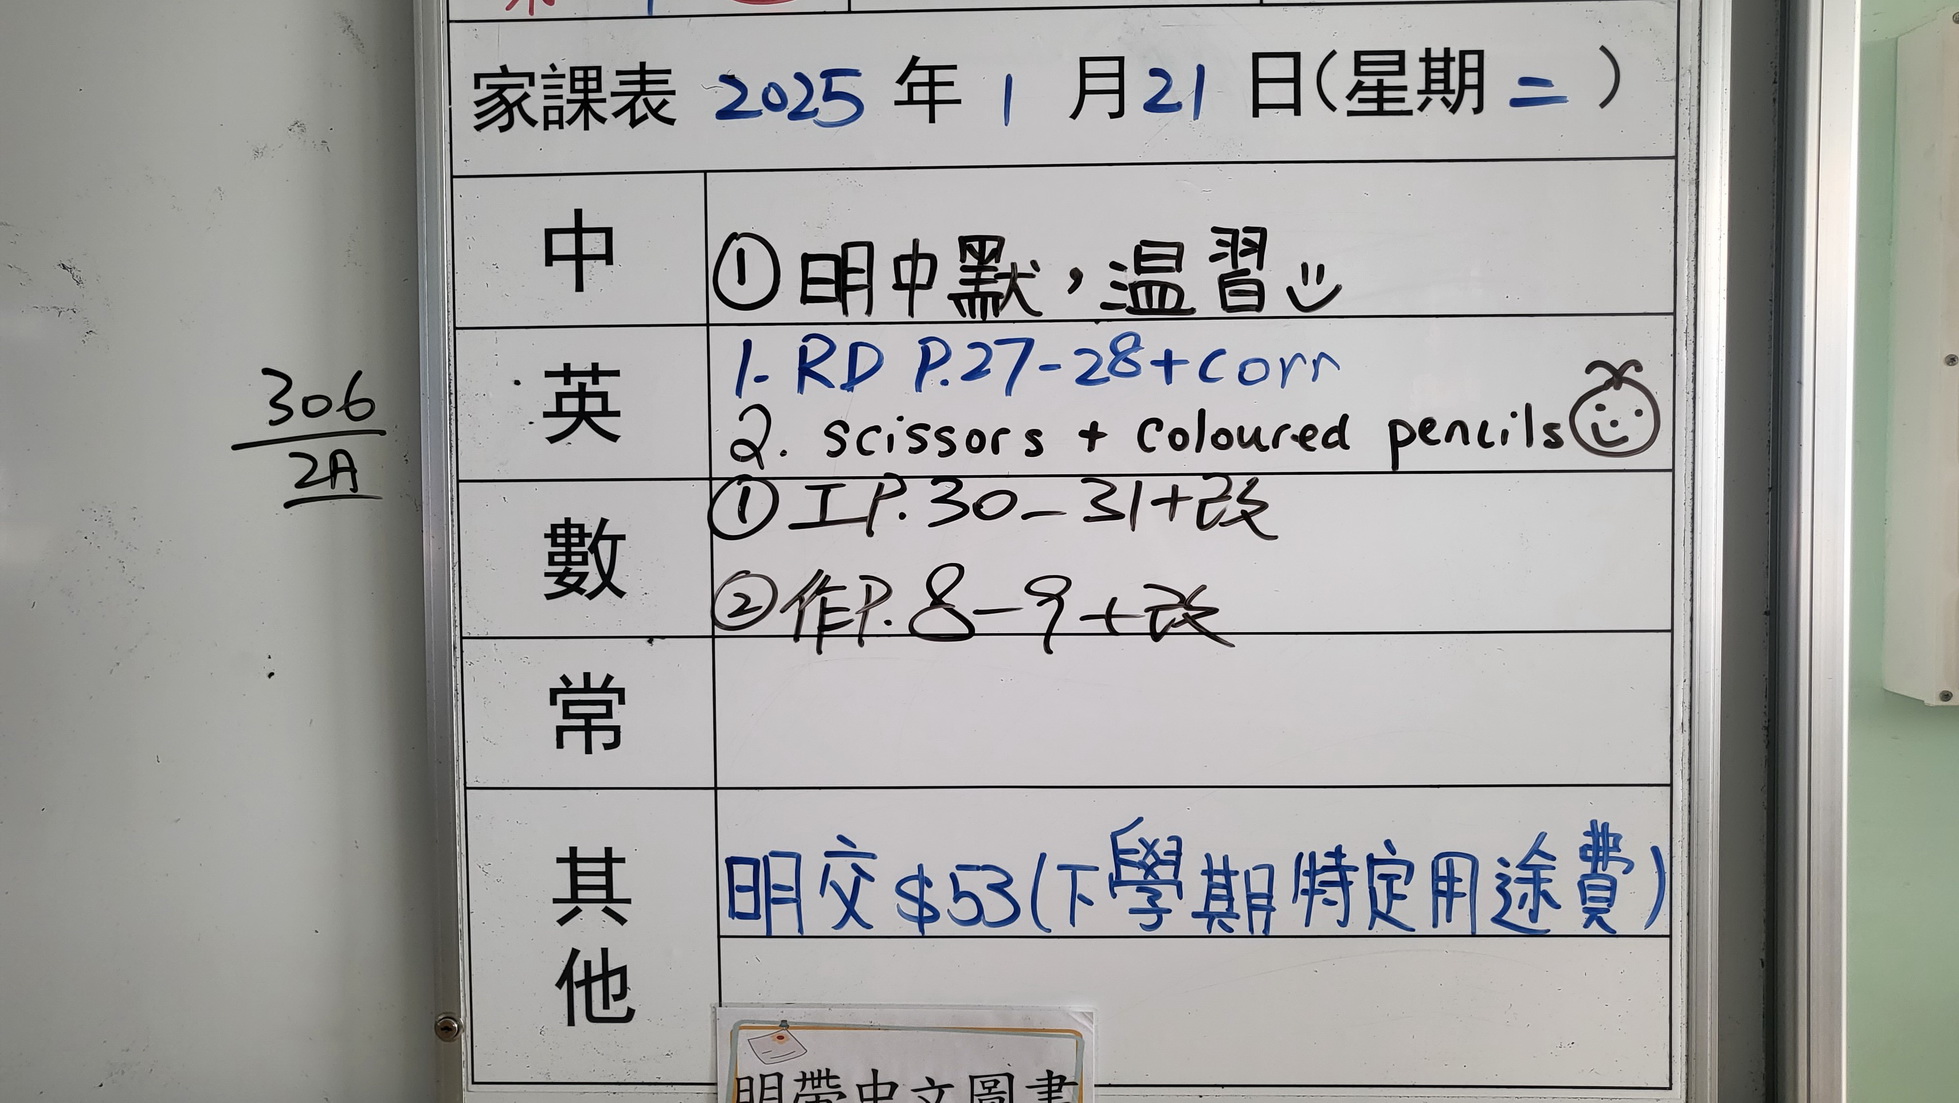 家課表 2025 年 1 月 21 日(星期 二 )
306
2A
中
① 明中默，温習
英
1. RD P.27-28+corr
2. scissors + coloured pencils
數
① 工P.30-31+改
② 作P.8-9+改
常
其他
明交 $53(下學期特定用途費)
明帶中文圖書